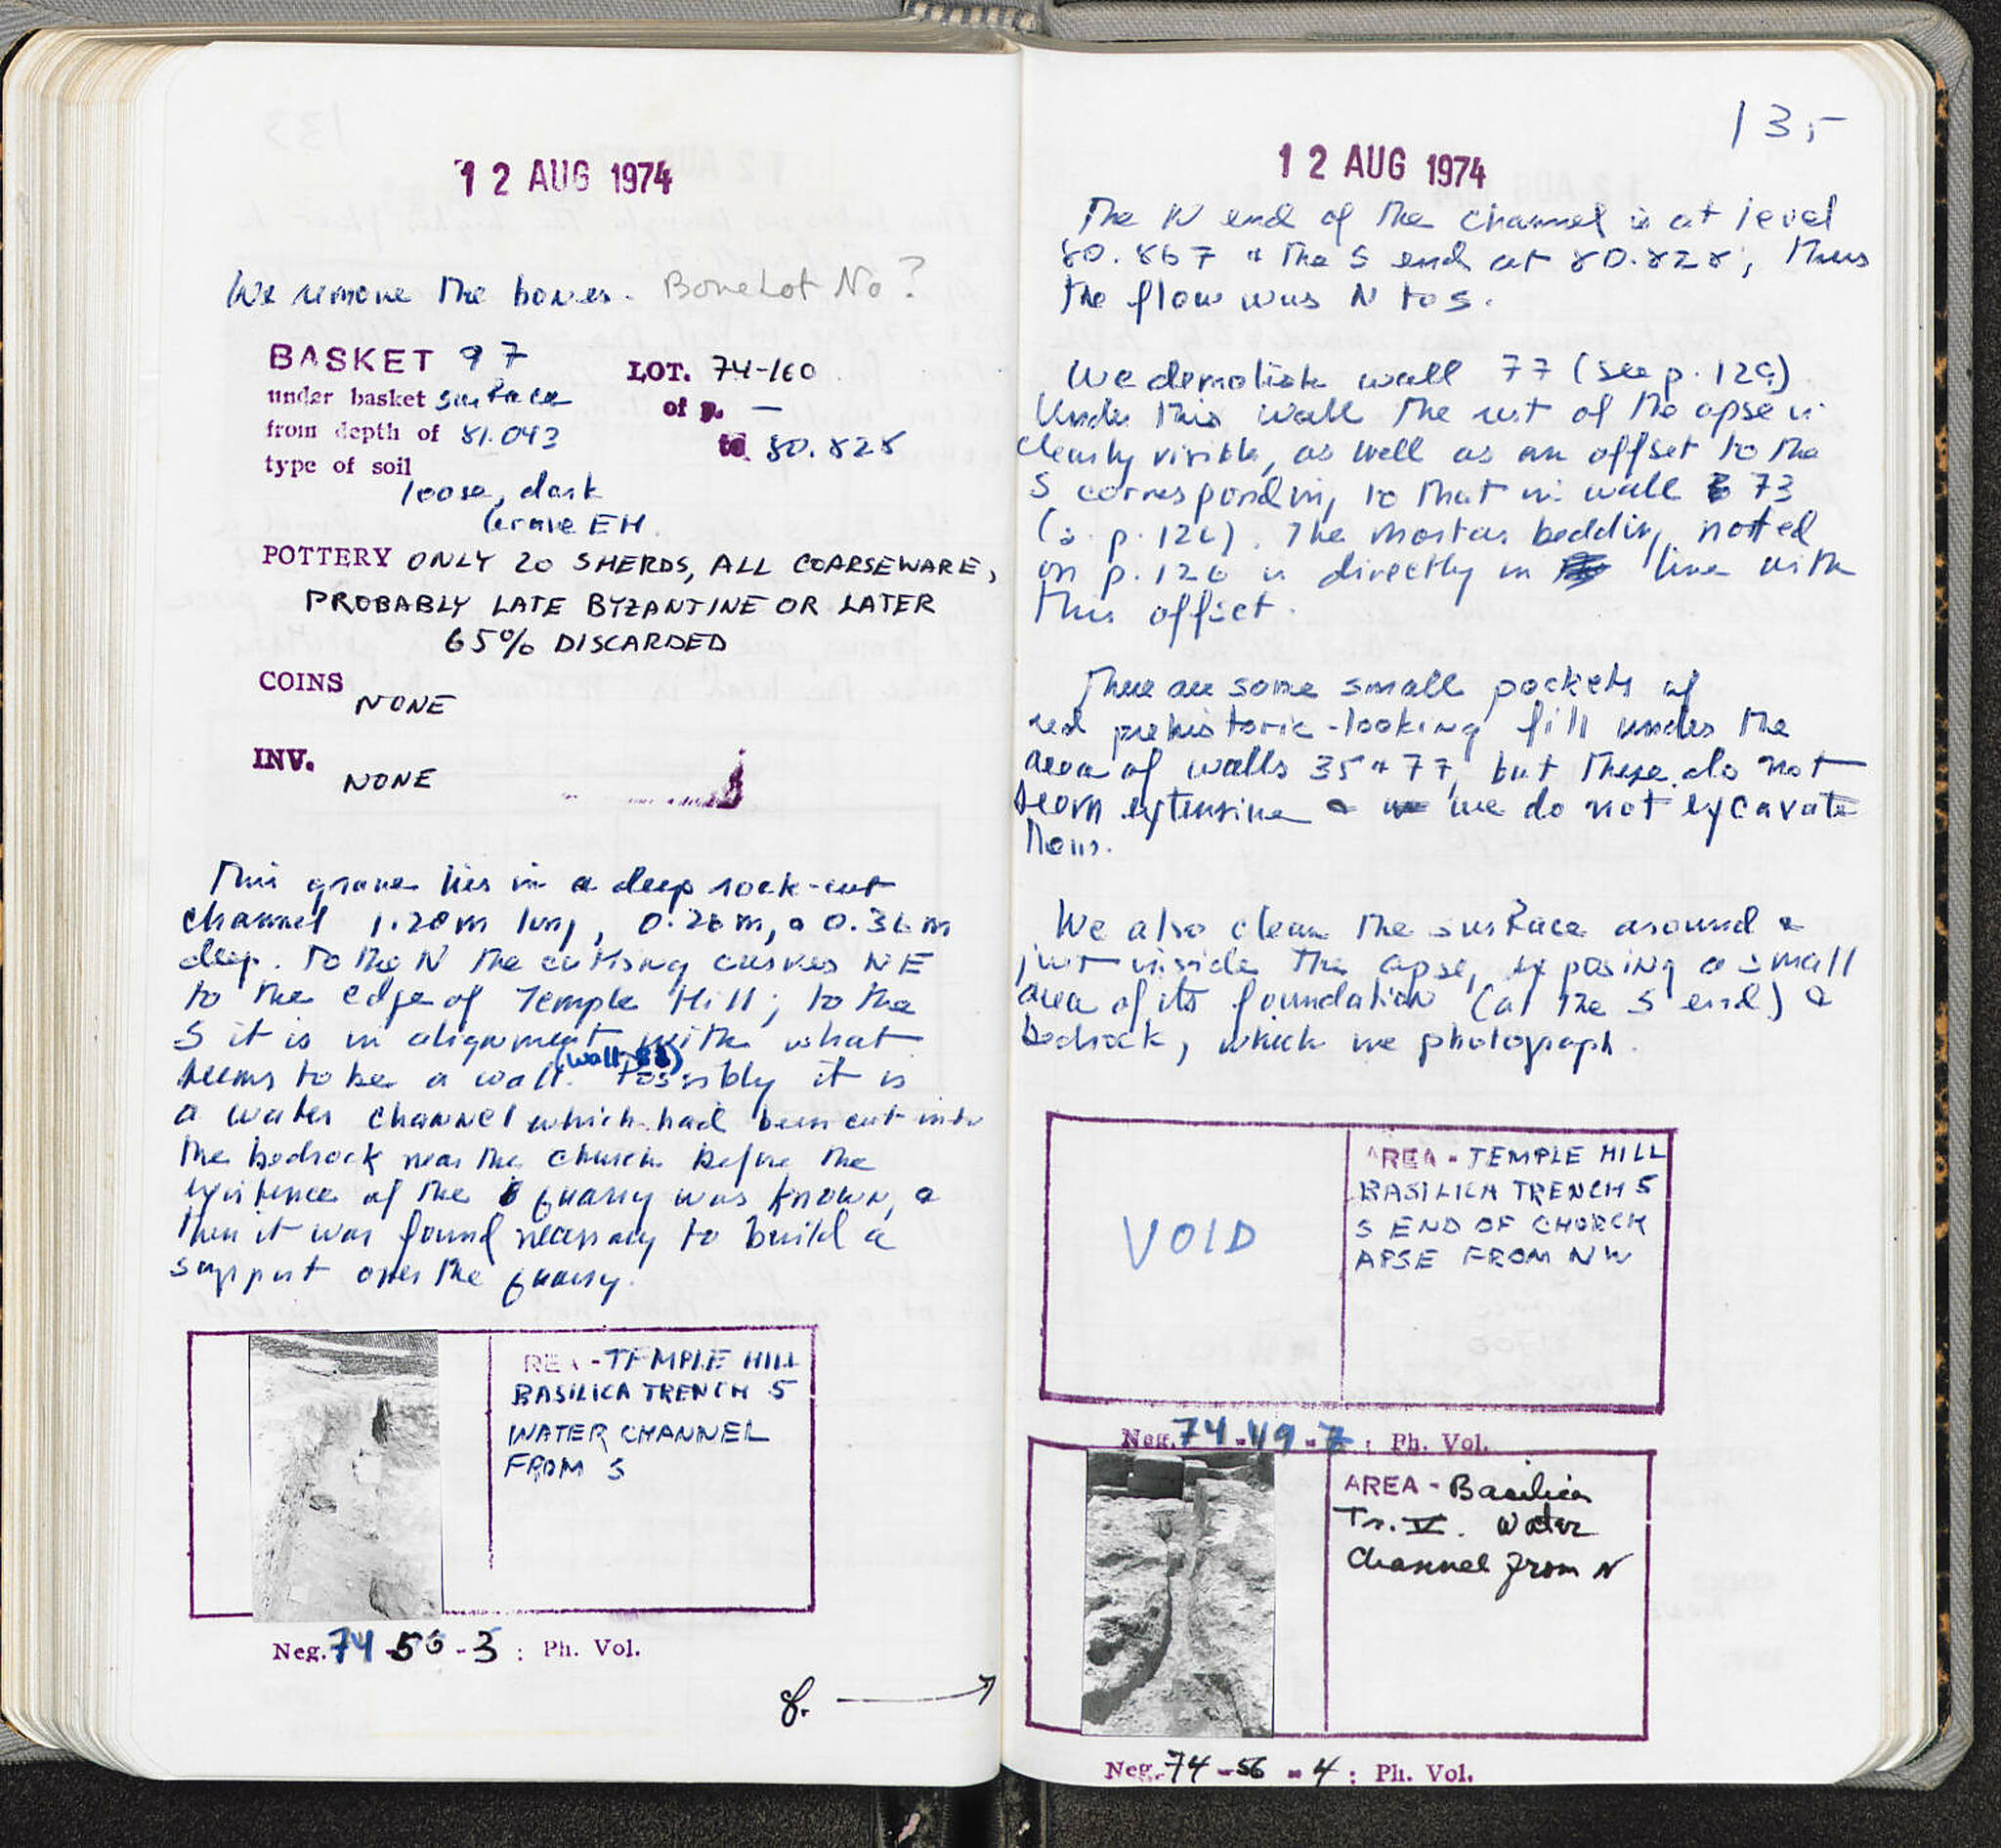 12 AUG 1974
We remove the bones. Bone Lot No?
BASKET 97
LOT. 74-160
under basket surface
of p. —
from depth of 81.043
to 80.828
type of soil
loose, dark
Grave EH.
POTTERY ONLY 20 SHERDS, ALL COARSEWARE,
PROBABLY LATE BYZANTINE OR LATER
65% DISCARDED
COINS
NONE
INV.
NONE
This grave lies in a deep rock-cut
channel 1.20m long, 0.26m, & 0.36m
deep. To the N the cutting curves NE
to the edge of Temple Hill; to the
S it is in alignment with what
seems to be a wall. (wall 81) Possibly it is
a water channel which had been cut into
the bedrock near the church before the
existence of the quarry was known, &
then it was found necessary to build a
support over the quarry.
REA - TEMPLE HILL
BASILICA TRENCH 5
WATER CHANNEL
FROM S
Neg. 74-56-3 : Ph. Vol.
cf. →
135
12 AUG 1974
The N end of the channel is at level
80.867 & the S end at 80.828; thus
the flow was N to S.
We demolish wall 77 (see p. 129)
Under this wall the rest of the apse is
clearly visible, as well as an offset to the
S corresponding to that in wall 73
(s. p. 126). The mortar bedding noted
on p. 126 is directly in line with
this offset.
There are some small pockets of
red prehistoric-looking fill under the
area of walls 35 & 77, but these do not
seem extensive & we do not excavate
them.
We also clean the surface around &
just inside the apse, exposing a small
area of its foundation (at the S end) &
bedrock, which we photograph.
VOID
AREA - TEMPLE HILL
BASILICA TRENCH 5
S END OF CHURCH
APSE FROM NW
Neg. 74-49-7 : Ph. Vol.
AREA - Basilica
Tr. V. Water
Channel from N
Neg. 74-56-4 : Ph. Vol.